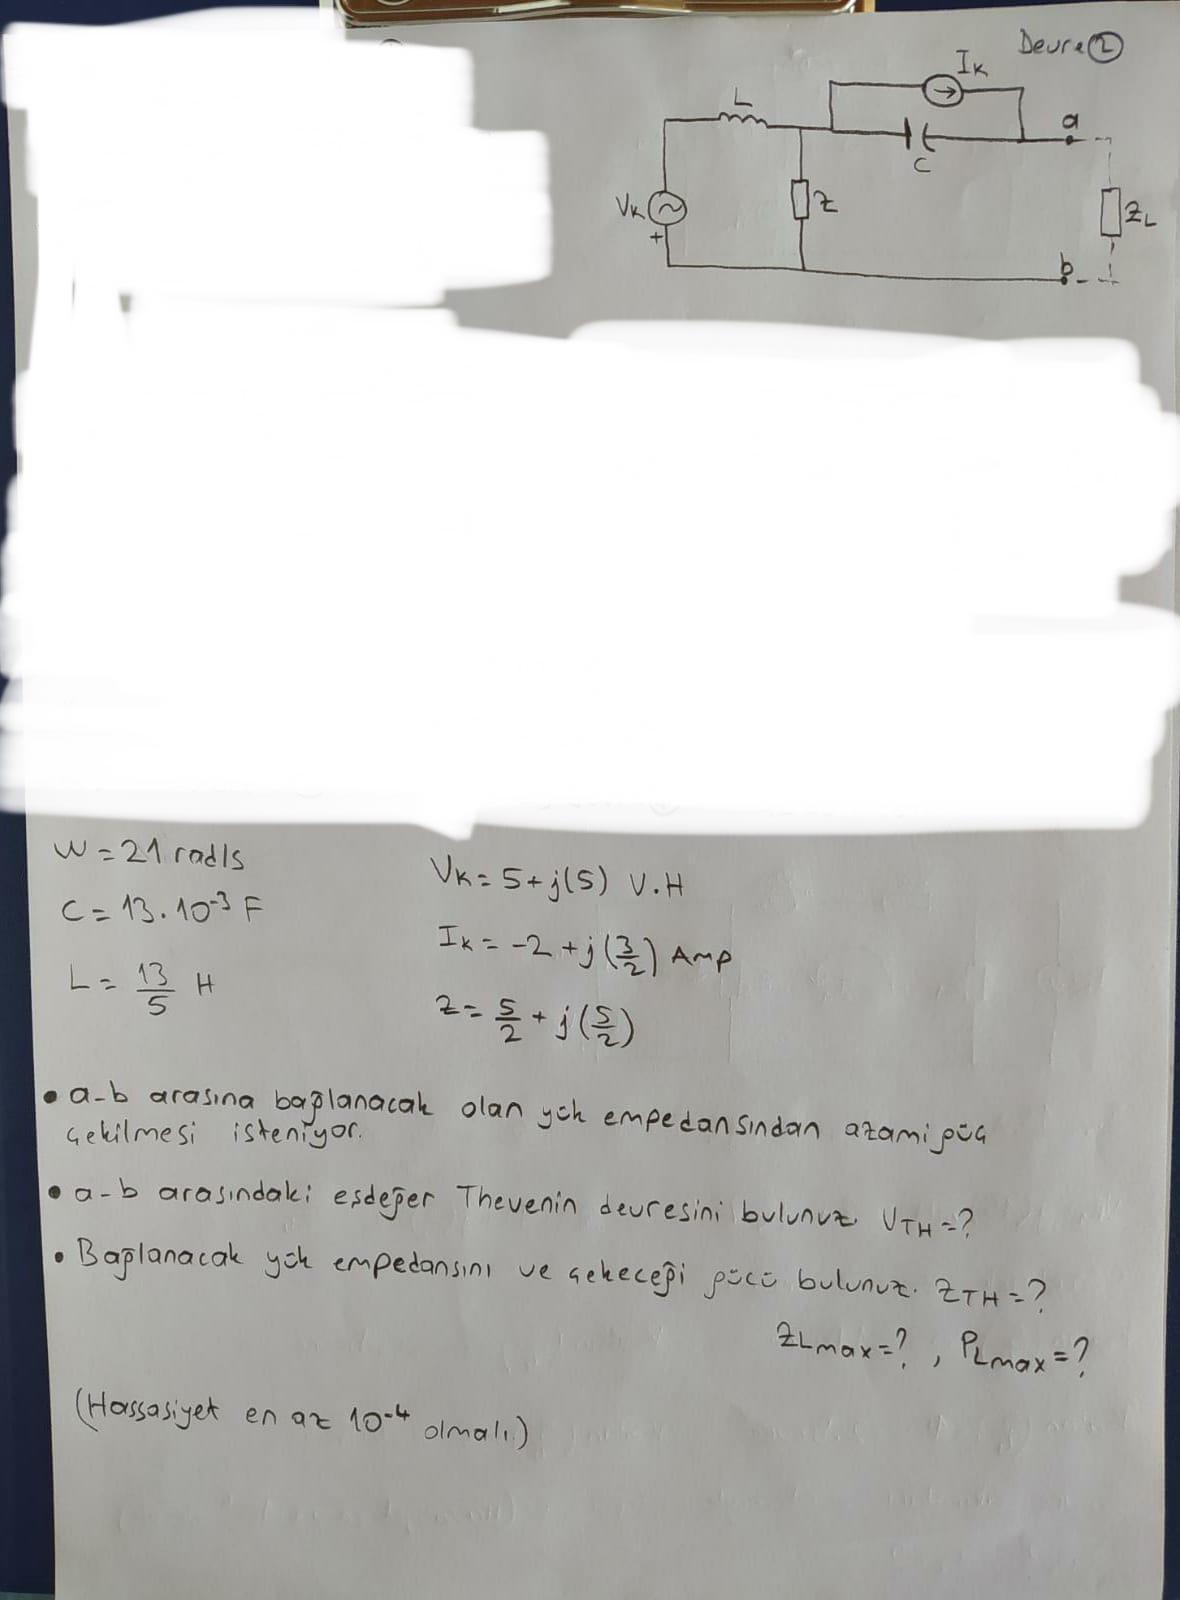 Devre 2
IK
L
a
C
VK
+
Z
ZL
b
W = 21 rad/s
C = 13.10-3 F
L = 13/5 H
VK = 5 + j(5) V.H
IK = -2 + j(3/2) Amp
Z = 5/2 + j(5/2)
• a-b arasına bağlanacak olan yük empedansından azami güç
çekilmesi isteniyor.
• a-b arasındaki eşdeğer Thevenin devresini bulunuz. VTH=?
• Bağlanacak yük empedansını ve çekeceği gücü bulunuz. ZTH=?
ZLmax=?, PLmax=?
(Hassasiyet en az 10-4 olmalı.)